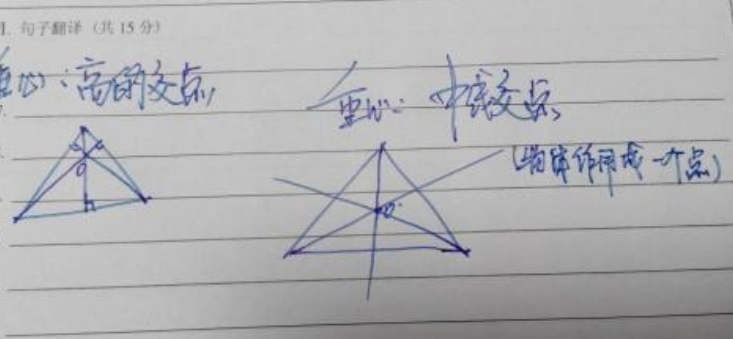 句子翻译（共 15 分）
垂心：高的交点
重心：中线交点
（物体作用成一个点）
O
O